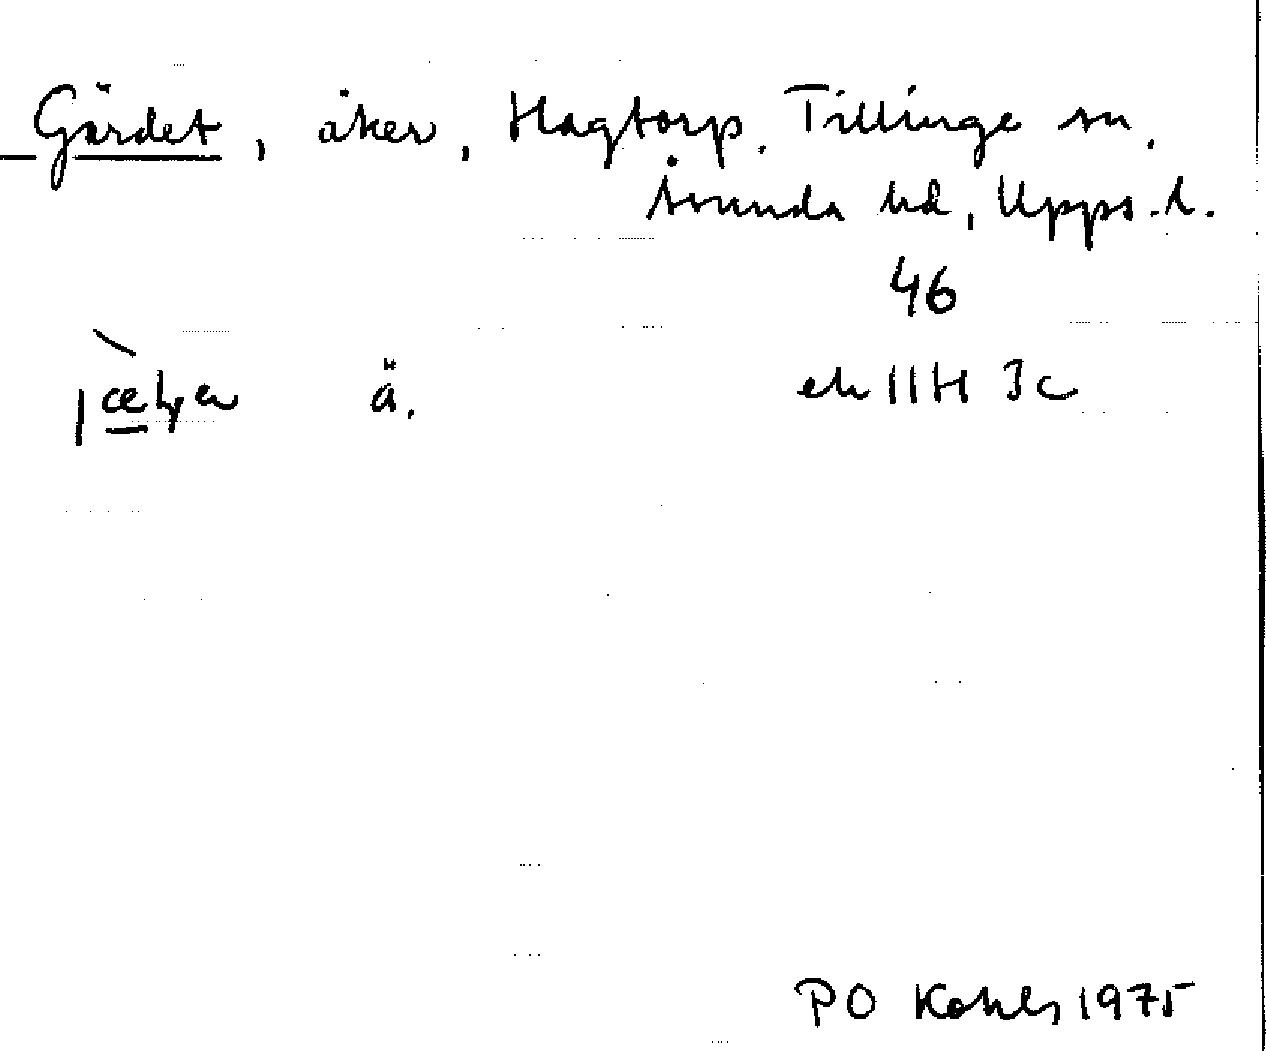 Gärdet, åker, Hagtorp. Tillinge sn.
Åsunda hd, Upps. l.
46
ä. ek 11H 3c
PO Kohls 1975